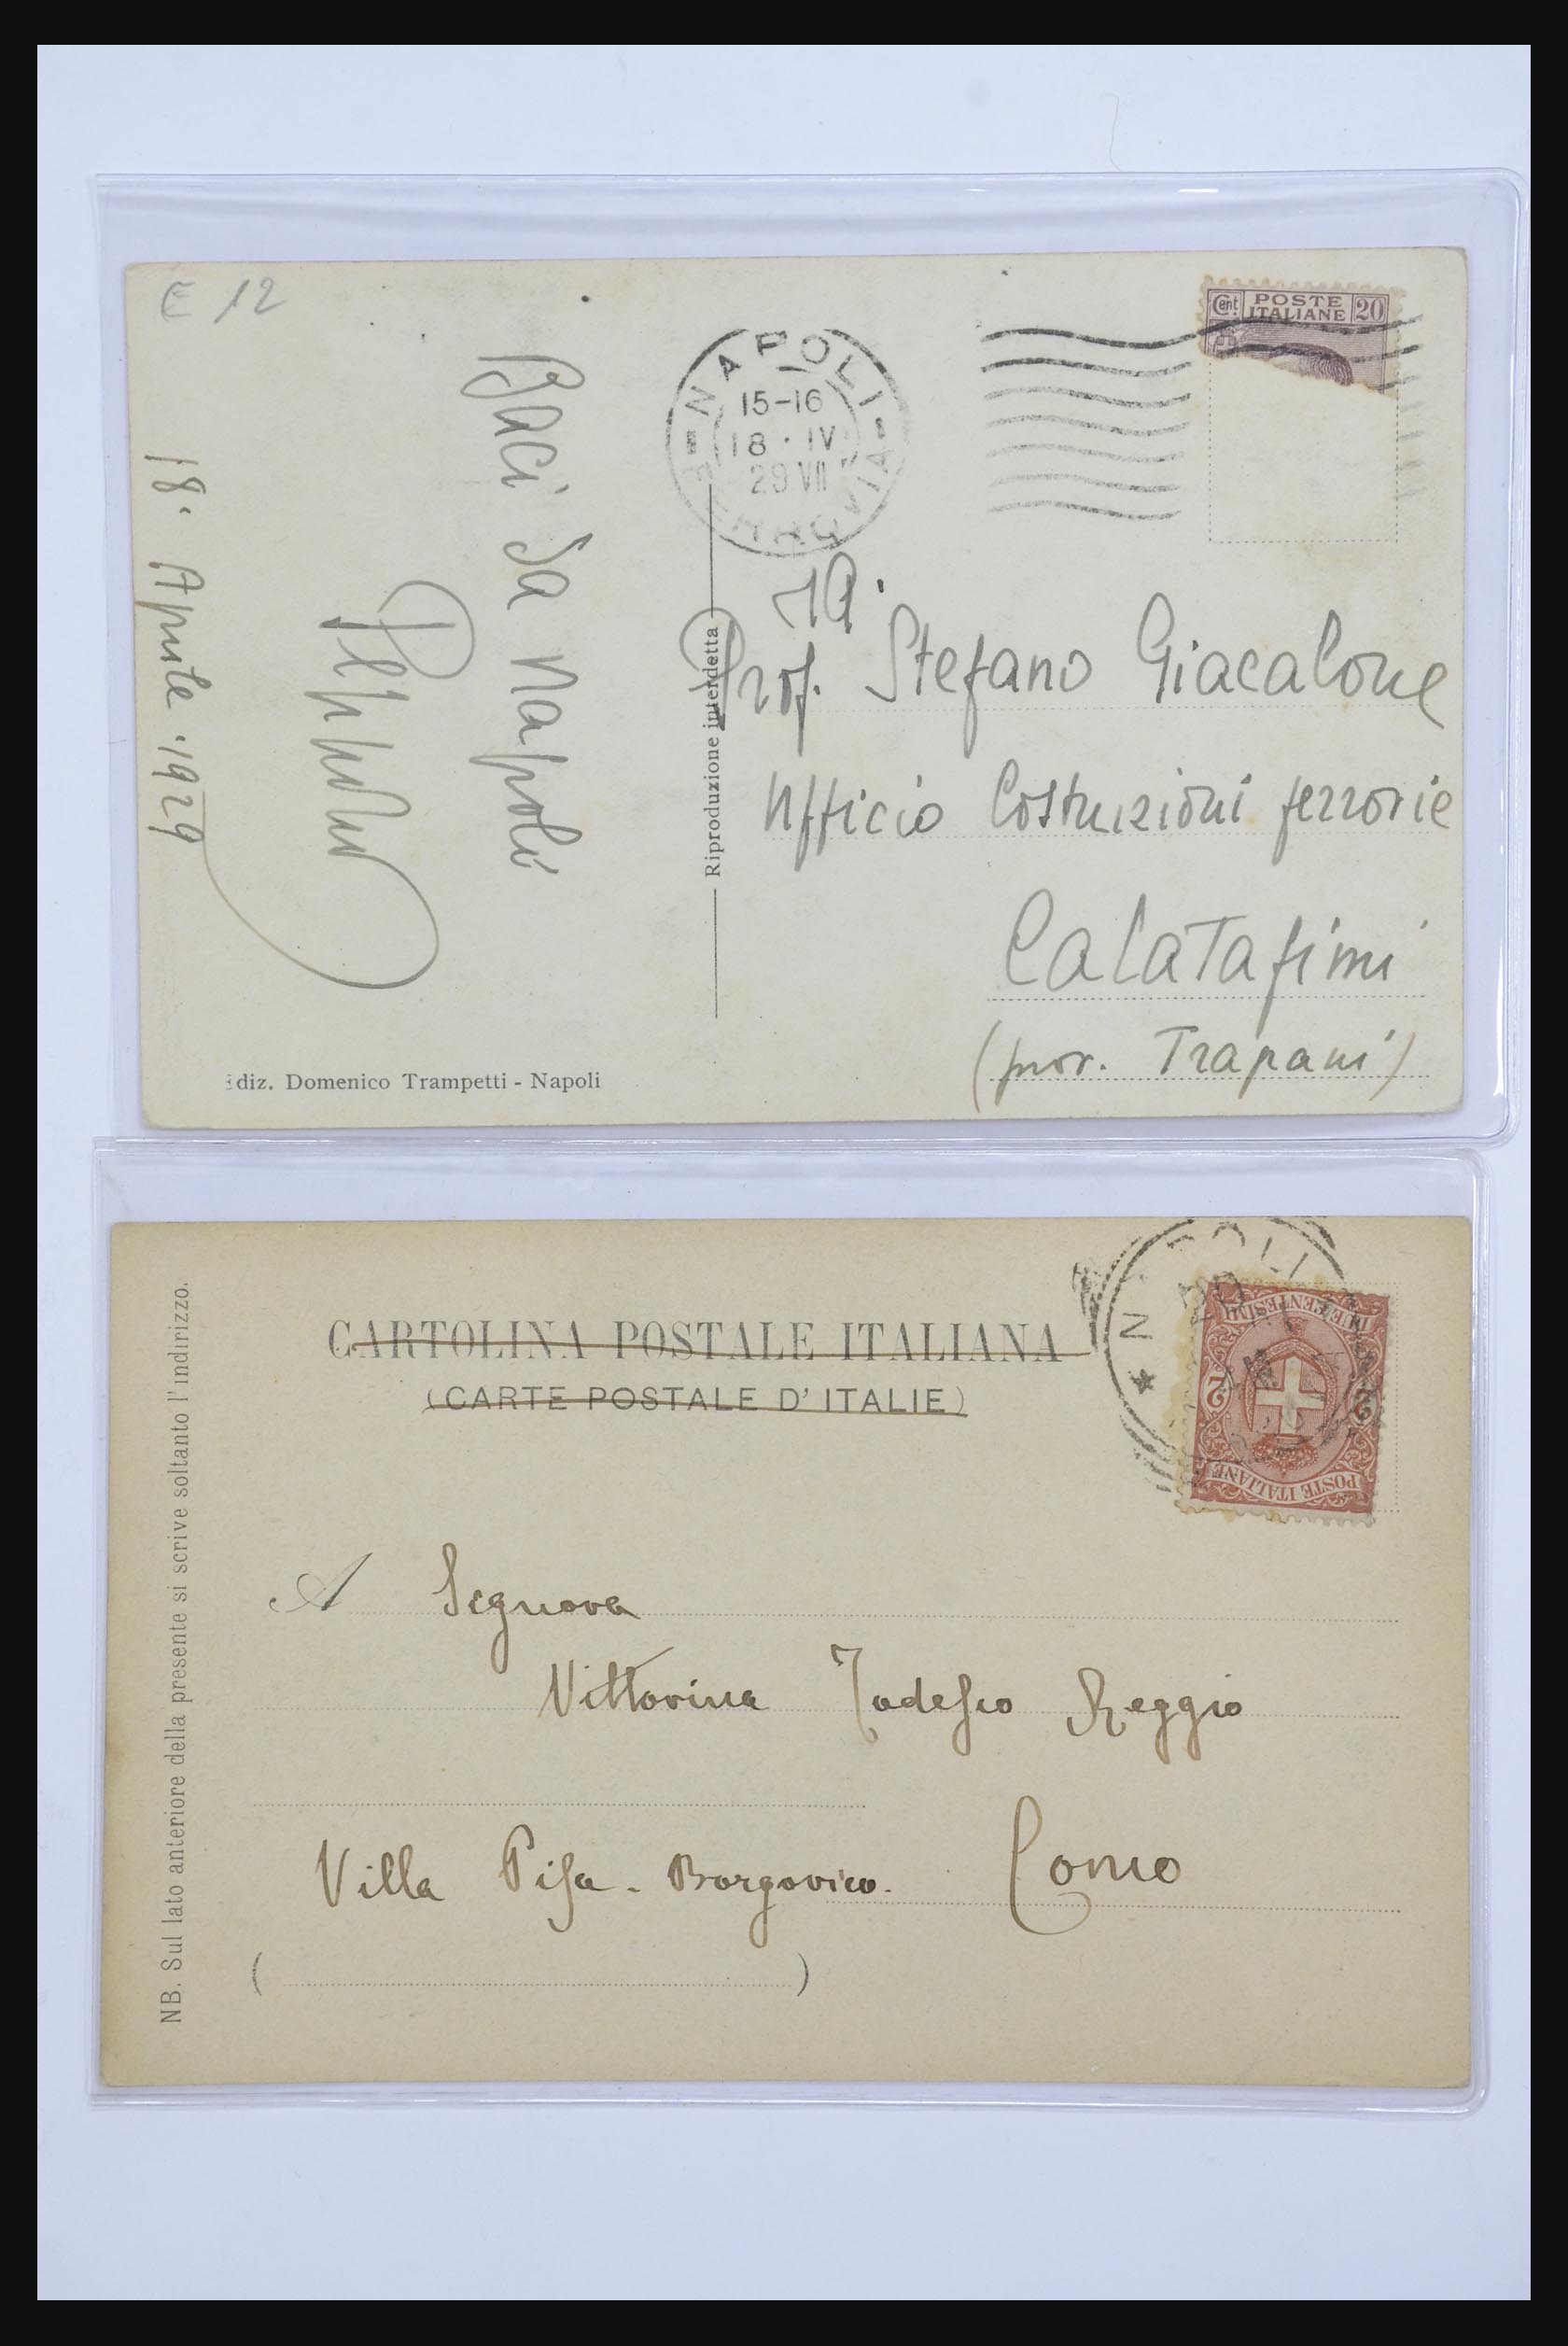 E 12
POSTE ITALIANE
Cent 20
NAPOLI
15-16
18 · IV
29 VII
FERROVIA
Baci da Napoli
18. Aprile 1929
Riproduzione interdetta
Prof. Stefano Giacalone
Ufficio Costruzioni ferrovie
Calatafimi
(prov. Trapani)
Ediz. Domenico Trampetti - Napoli
CARTOLINA POSTALE ITALIANA
(CARTE POSTALE D' ITALIE)
NAPOLI
DUE CENTESIMI
2 2
POSTE ITALIANE
NB. Sul lato anteriore della presente si scrive soltanto l'indirizzo.
A Signora
Vittorina Tedesco Reggio
Villa Pisa - Borgovico. Como